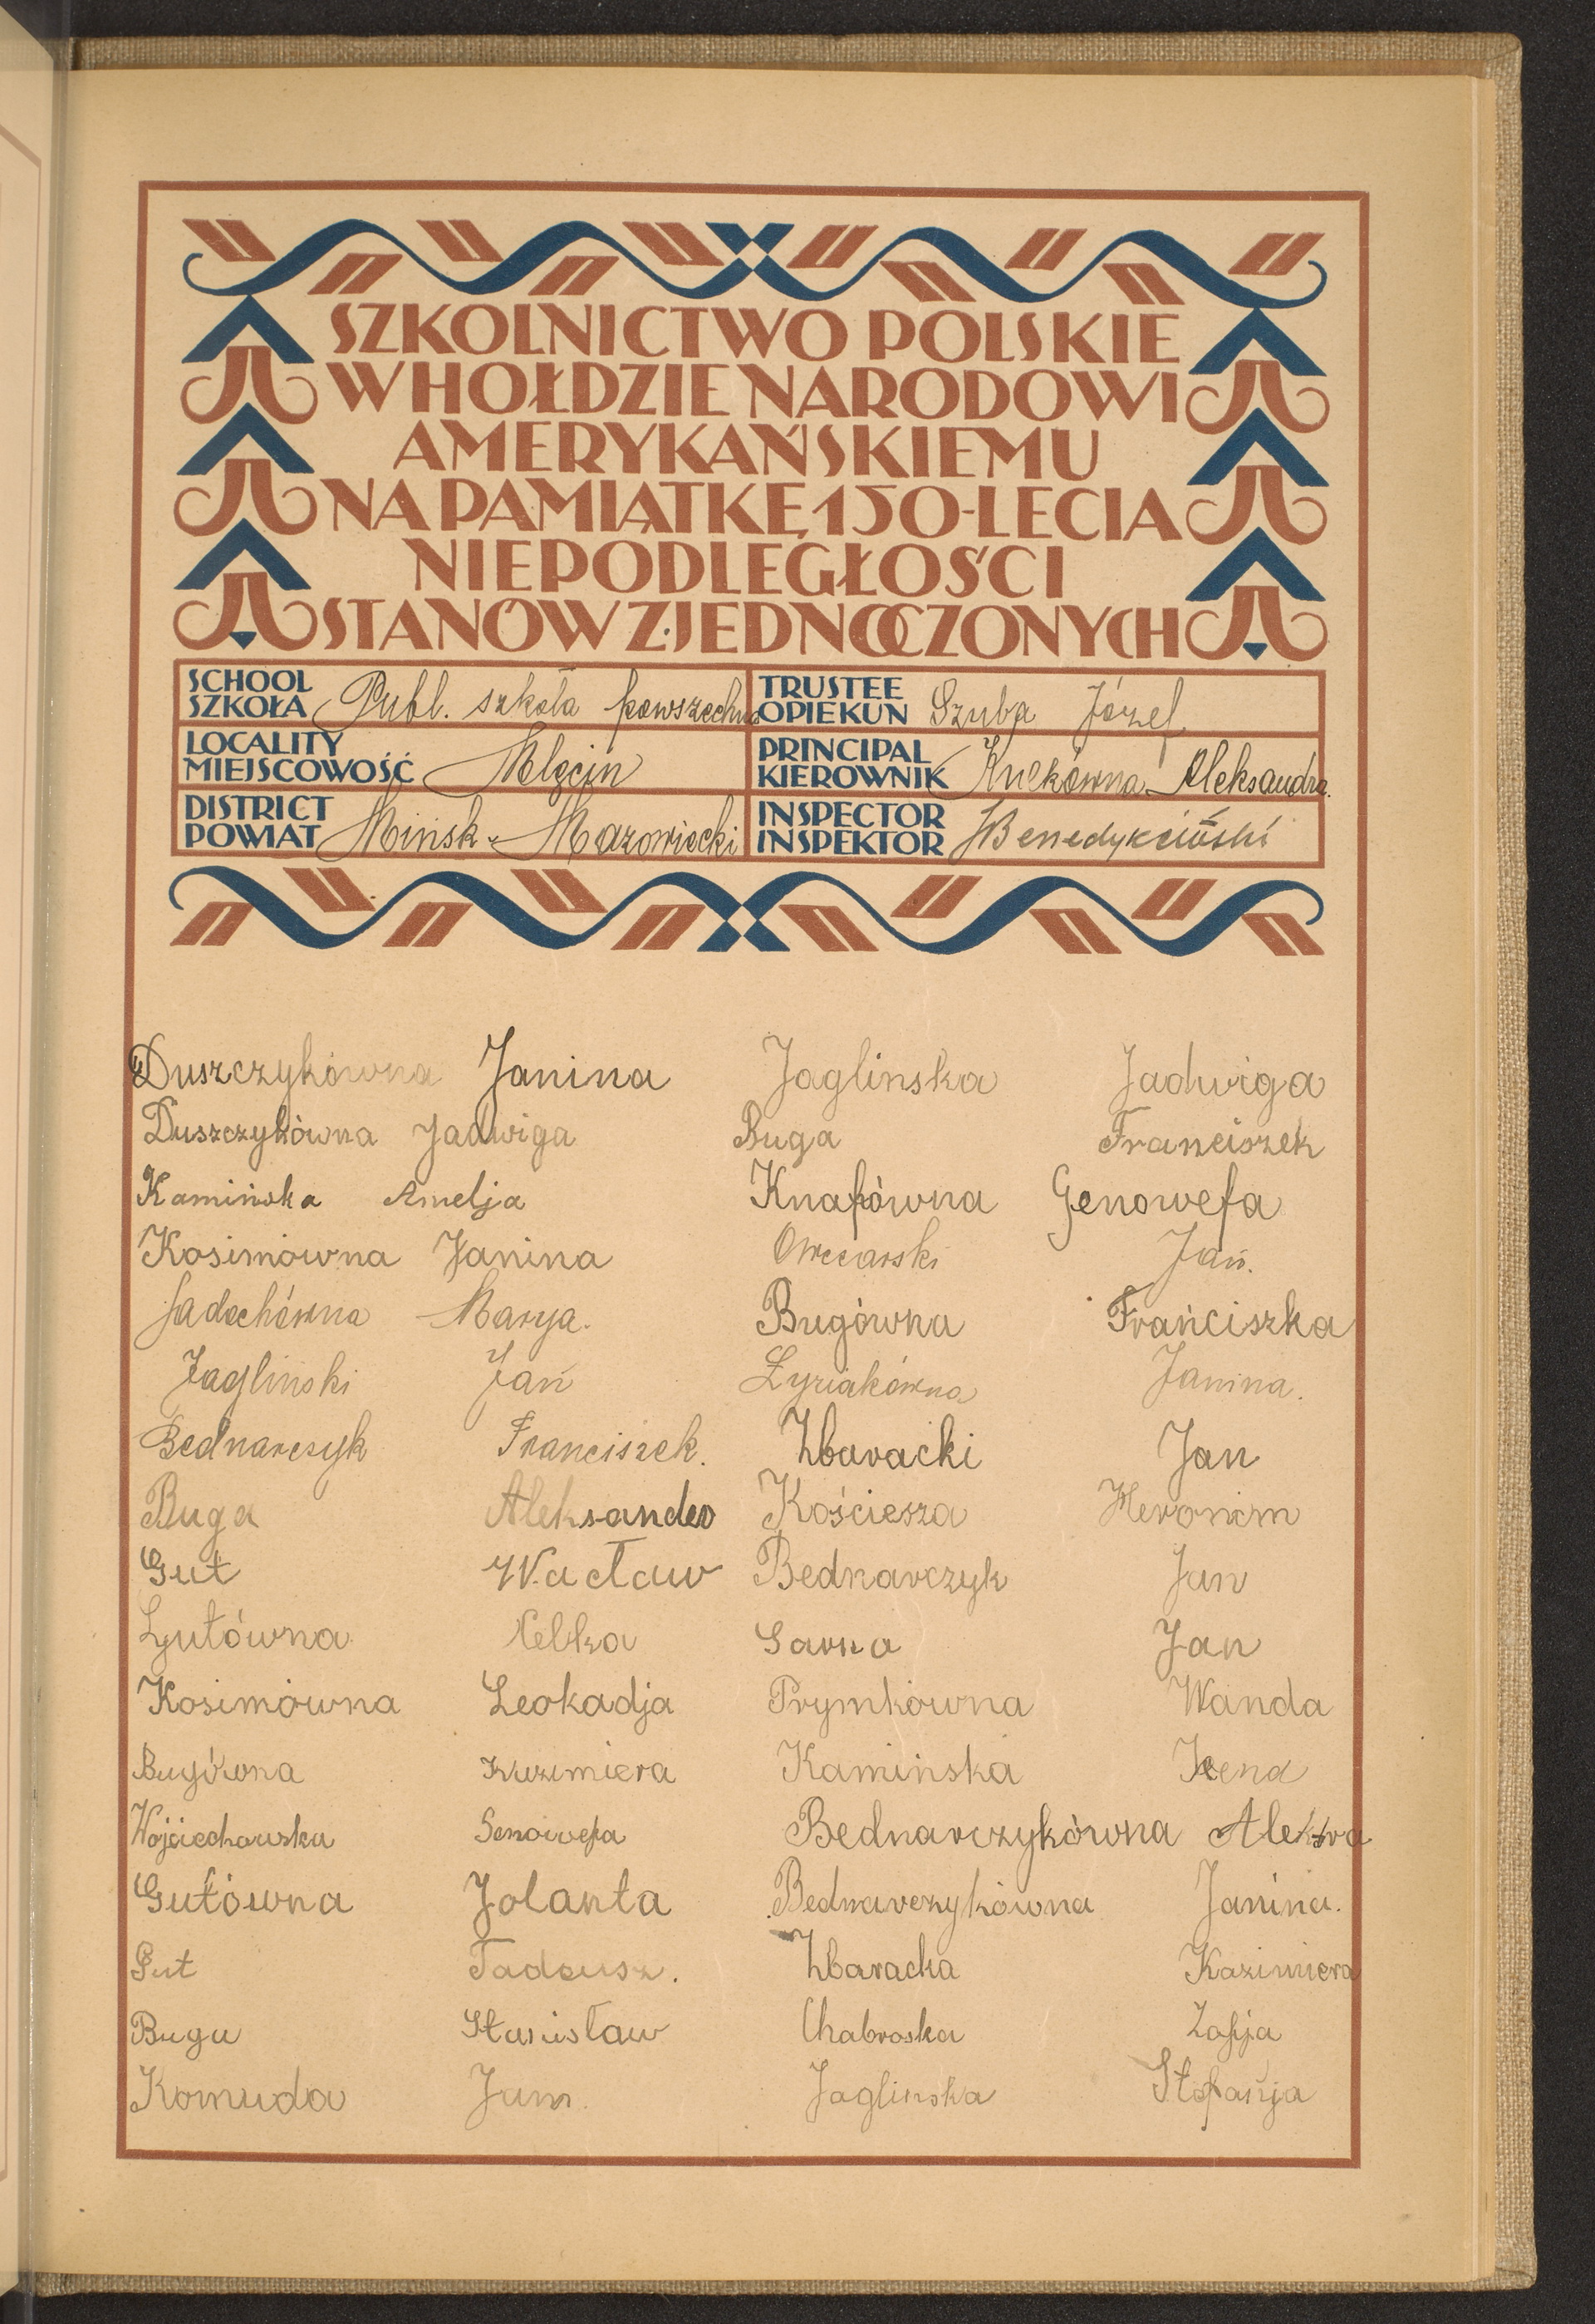 SZKOLNICTWO POLSKIE
W HOŁDZIE NARODOWI
AMERYKAŃSKIEMU
NA PAMIĄTKĘ 150-LECIA
NIEPODLEGŁOŚCI
STANÓW ZJEDNOCZONYCH
SCHOOL
SZKOŁA Publ. szkoła powszechna
TRUSTEE
OPIEKUN Szuba Józef
LOCALITY
MIEJSCOWOŚĆ Mlęcin
PRINCIPAL
KIEROWNIK Aleksandra
DISTRICT
POWIAT Mińsk-Mazowiecki
INSPECTOR
INSPEKTOR Benedykciński
Duszczykówna Janina
Duszczykówna Jadwiga
Kamińska Amelja
Kosimówna Janina
Sadochówna Marya.
Jagliński Jan
Bednarczyk Franciszek.
Buga Aleksander
Gut Wacław
Kosimówna Leokadja
Bugówna Kazimiera
Wojciechowska Genowefa
Gutówna Jolanta
Gut Tadeusz.
Buga Stanisław
Komuda Jan.
Jaglinska Jadwiga
Buga Franciszek
Knapówna Genowefa
Owczarski Jan.
Bugówna Franciszka
Zyziakówna Janina.
Zbaracki Jan
Kościesza Heronim
Bednarczyk Jan
Sarna Jan
Prymkówna Wanda
Kamińska Irena
Bednarczykówna
Bednarczykówna Janina.
Zbaracka Kazimiera
Chabroska Zofija
Jaglinska Stefanja